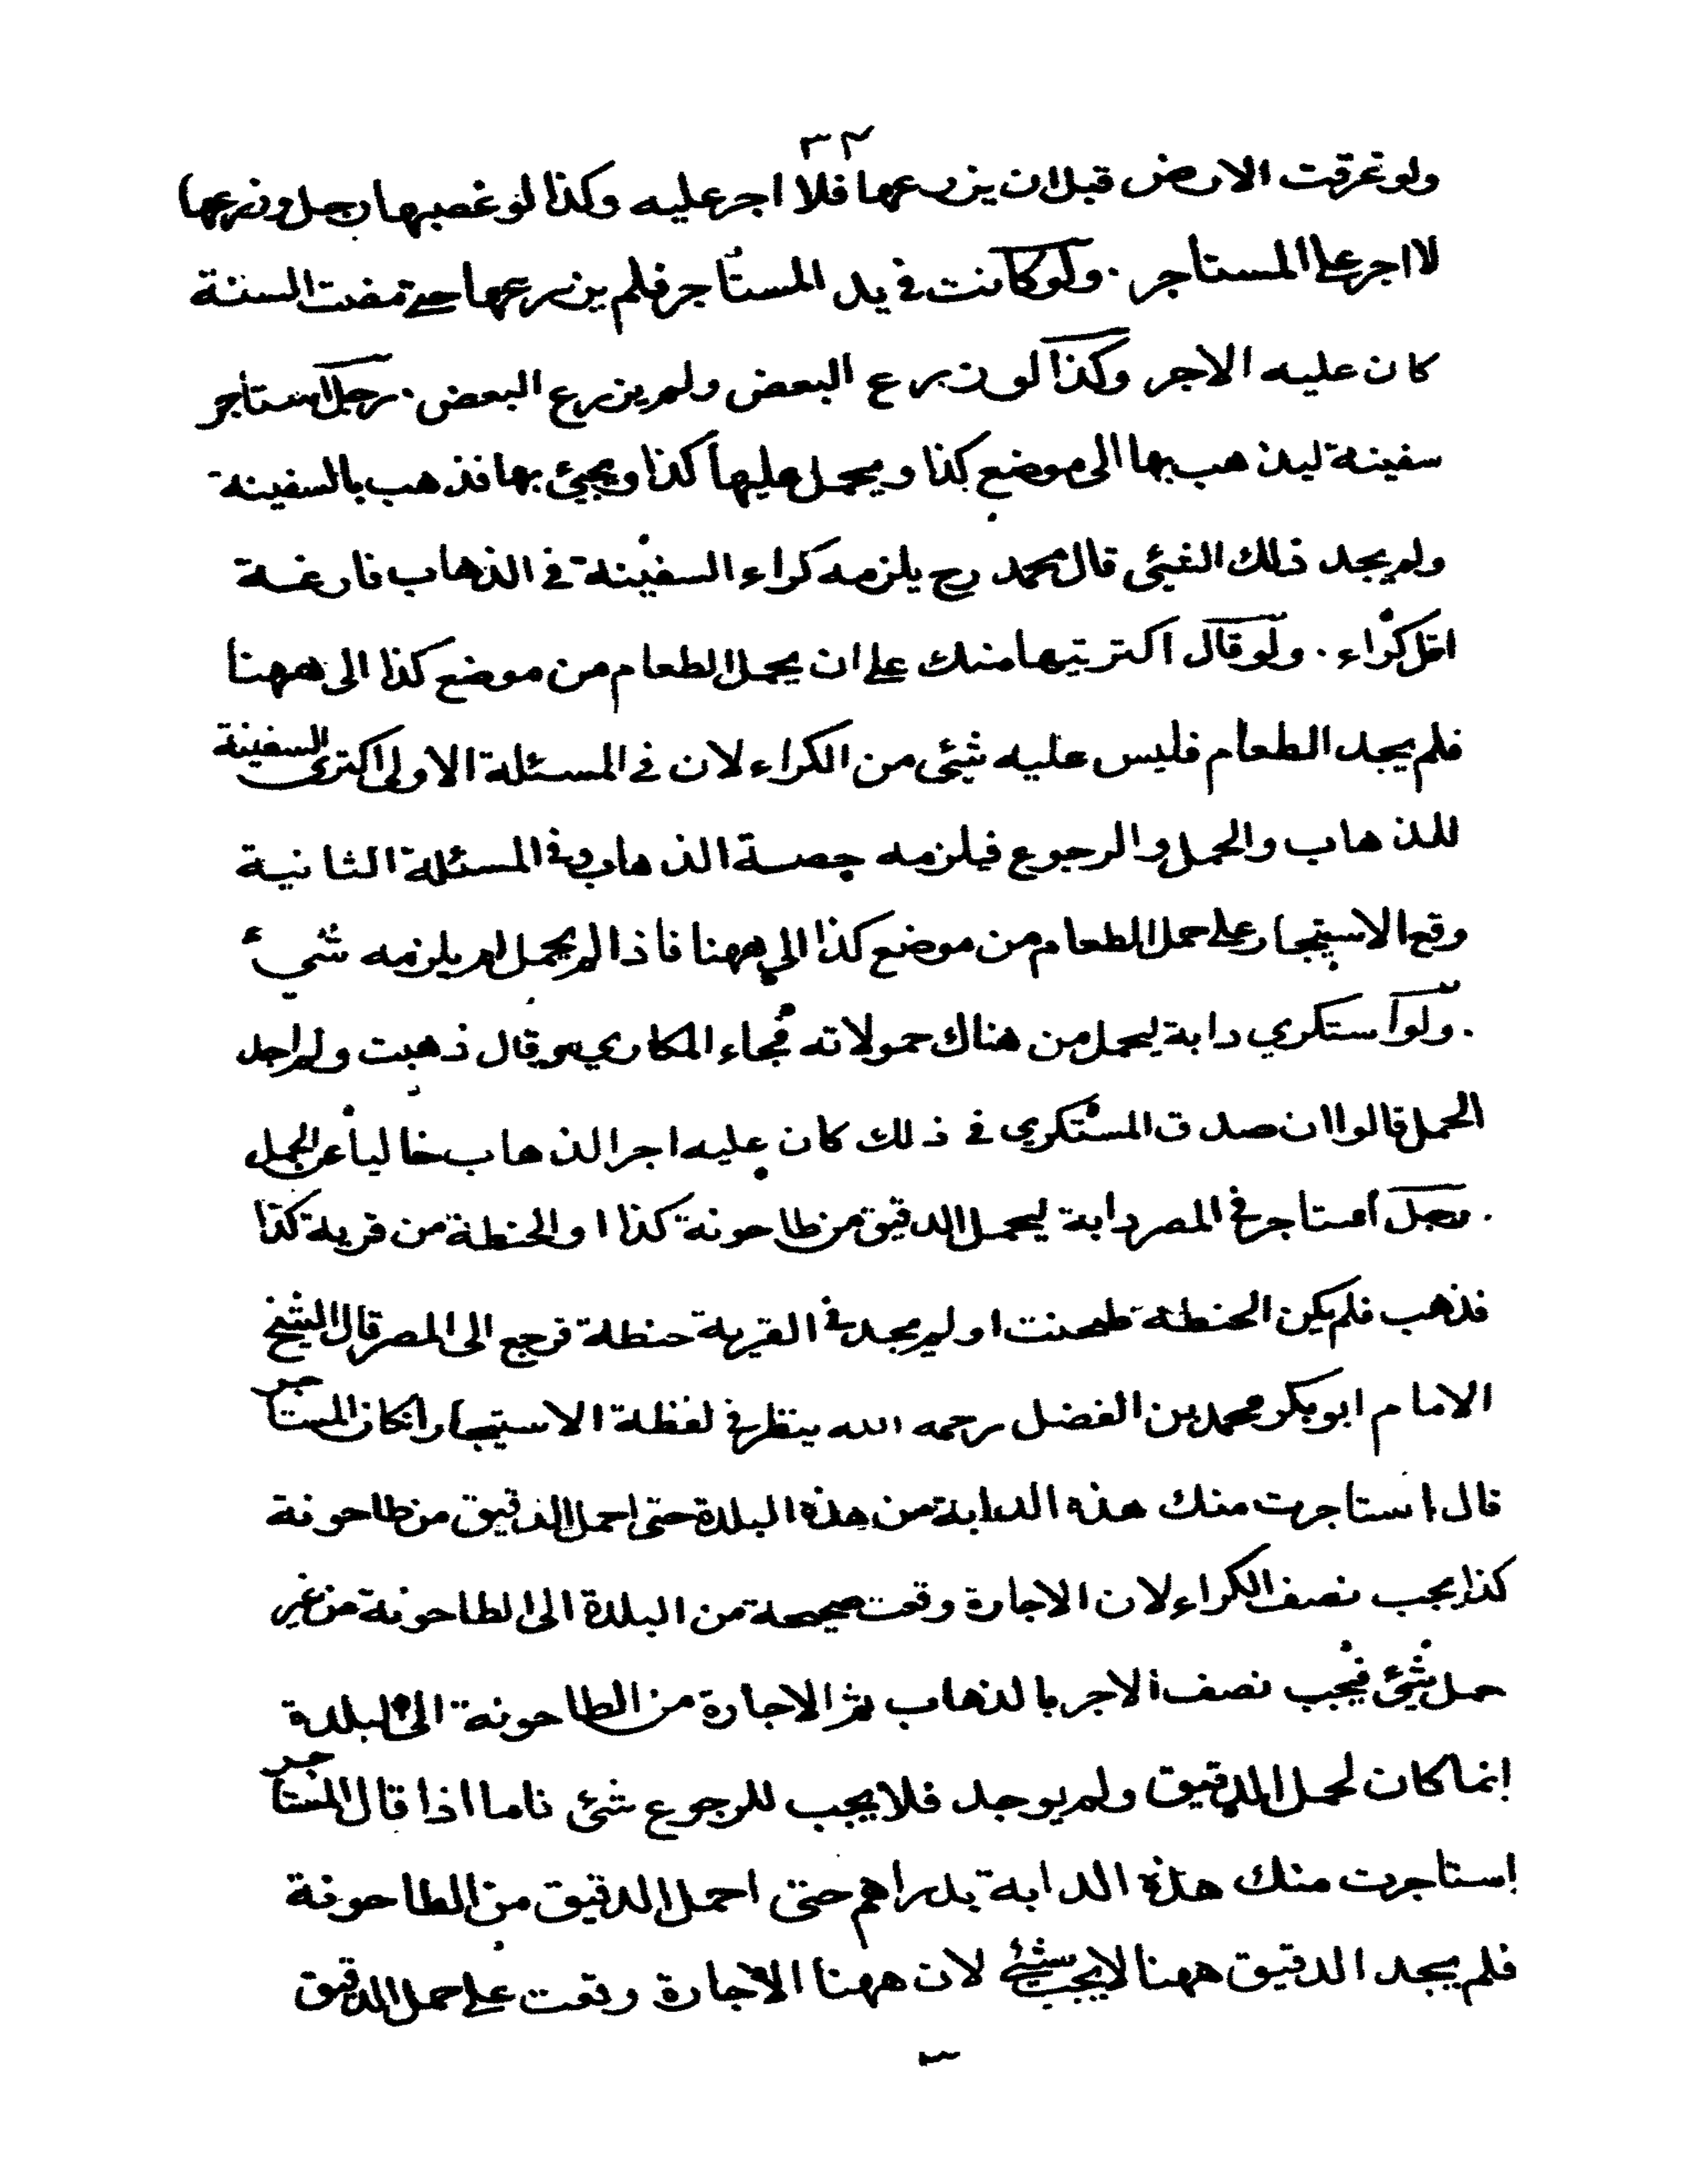 ٣٢
ولو غرقت الارض قبل ان يزرعها فلا اجر عليه وكذا لو غصبها رجل وزرعها
لا اجر على المستاجر . ولو كانت في يد المستأجر فلم يزرعها حتى مضت السنة
كان عليه الاجر وكذا لو زرع البعض ولم يزرع البعض . رجل استأجر
سفينة ليذهب بها الى موضع كذا ويحمل عليها كذا ويجيئ بها فذهب بالسفينة
ولم يجد ذلك الشيئ قال محمد رح يلزمه كراء السفينة في الذهاب فارغة
اقل كراء . ولو قال اكتريتها منك على ان يحمل الطعام من موضع كذا الى ههنا
فلم يجد الطعام فليس عليه شيئ من الكراء لان في المسئلة الاولى اكترى السفينة
للذهاب والحمل والرجوع فيلزمه حصة الذهاب وفي المسئلة الثانية
وقع الاستيجار على حمل الطعام من موضع كذا الى ههنا فاذا لم يحمل لم يلزمه شيء
. ولو استكري دابة ليحمل من هناك حمولاته فجاء المكاري وقال ذهبت ولم اجد
الحمل قالوا ان صدق المستكري في ذلك كان عليه اجر الذهاب خاليا عن الحمل
. رجل استاجر في المصر دابة ليحمل الدقيق من طاحونة كذا او الحنطة من قرية كذا
فذهب فلم يكن الحنطة طحنت او لم يجد في القرية حنطة فرجع الى المصر قال الشيخ
الامام ابو بكر محمد بن الفضل رحمه الله ينظر في لفظة الاستيجار ان كان المستاجر
قال استاجرت منك هذه الدابة من هذه البلدة حتى احمل الدقيق من طاحونة
كذا يجب نصف الكراء لان الاجارة وقعت صحيحة من البلدة الى الطاحونة من غير
حمل شيئ فيجب نصف الاجر بالذهاب ثم الاجارة من الطاحونة الى البلدة
إنما كان لحمل الدقيق ولم يوجد فلا يجب للرجوع شئ فاما اذا قال المستاجر
إستاجرت منك هذه الدابة بدراهم حتى احمل الدقيق من الطاحونة
فلم يجد الدقيق ههنا لا يجب شيئ لان ههنا الاجارة وقعت على حمل الدقيق